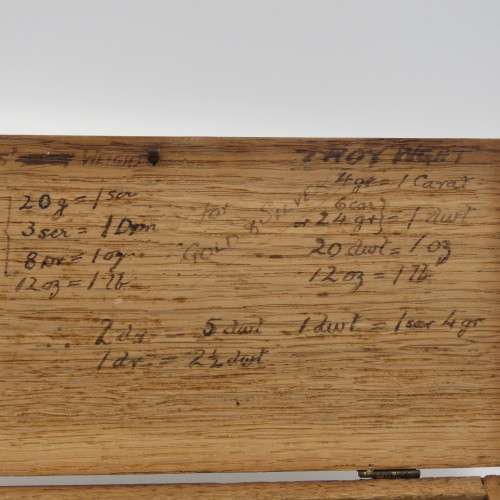 WEIGHT
20g = 1 scr
3 scr = 1 Drm
8 Dr = 1 oz
12 oz = 1 lb
for
GOLD & SILVER
TROY WGHT
4 gr = 1 Carat
6 car
or 24 gr } = 1 dwt
20 dwt = 1 oz
12 oz = 1 lb
∴ 2 dr = 5 dwt 1 dwt = 1 scr 4 gr
1 dr. = 2½ dwt